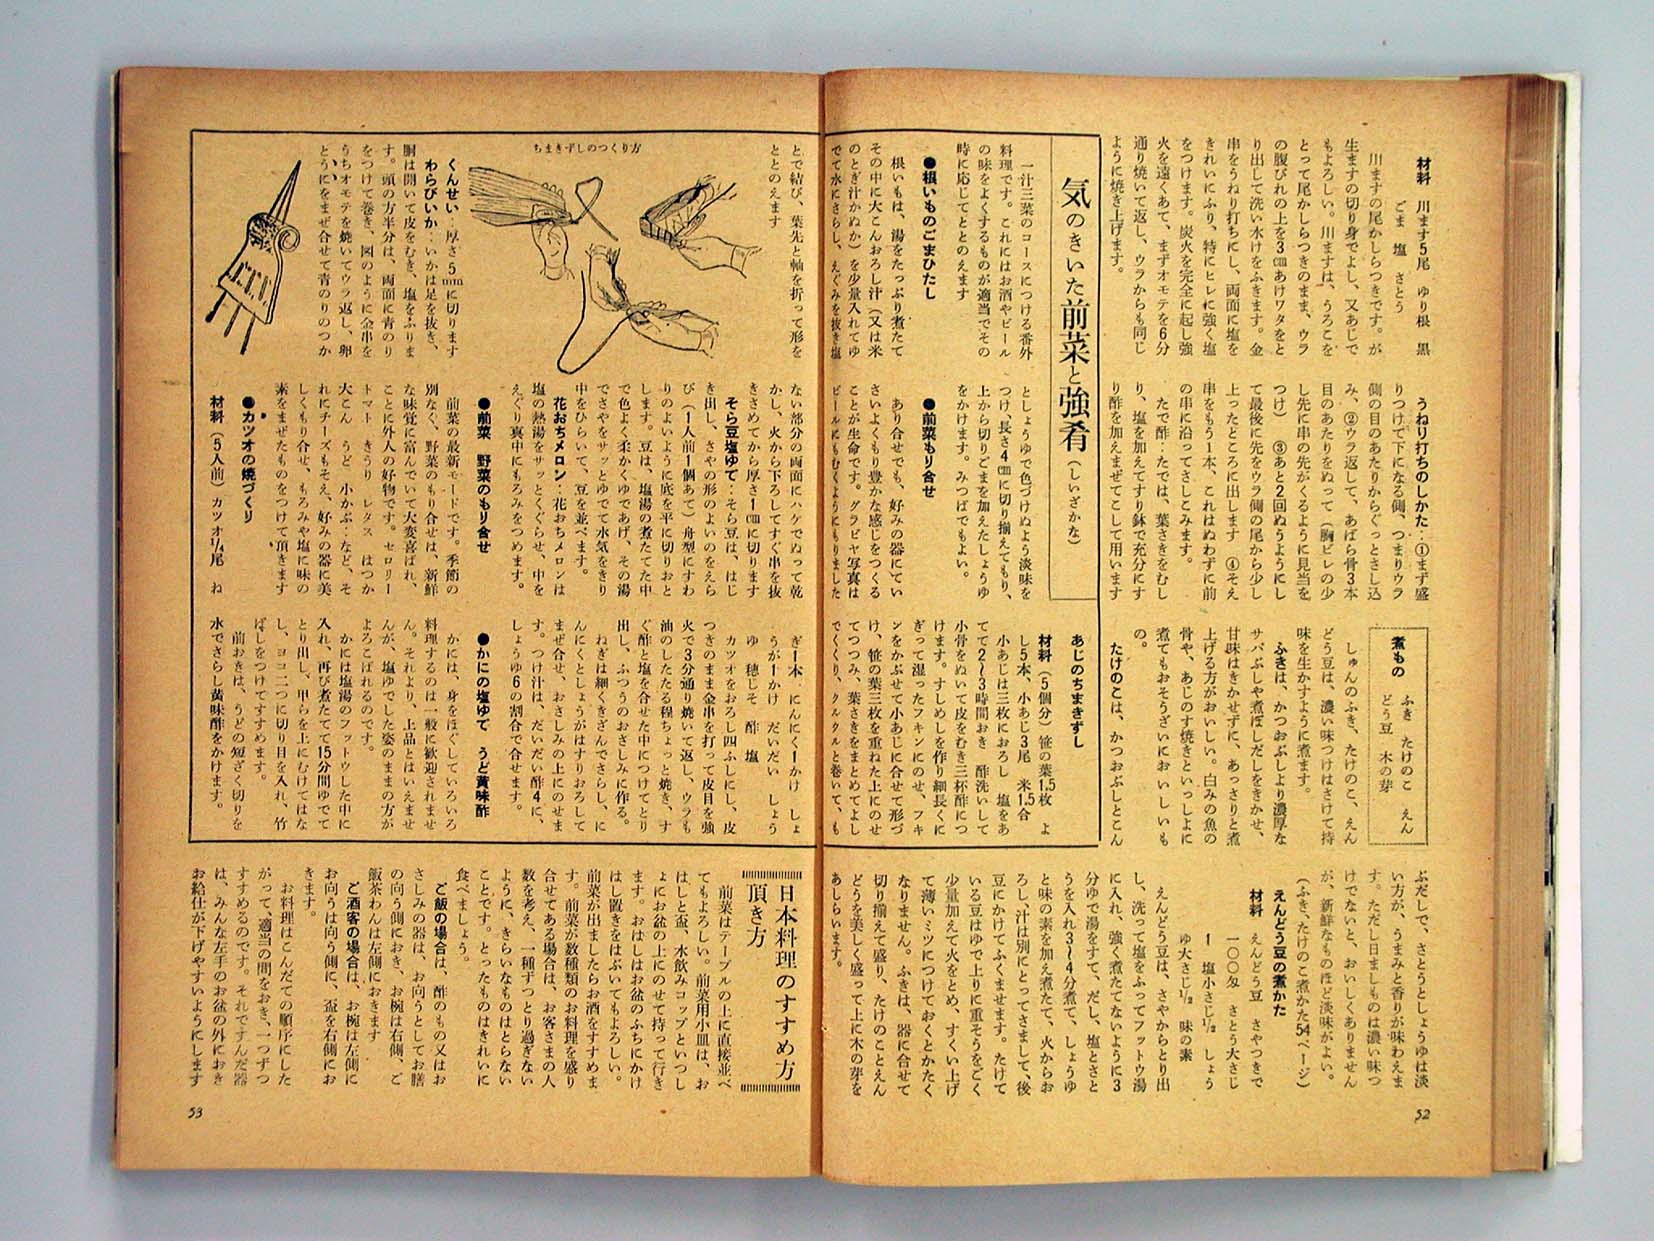 材料　川ます5尾　ゆり根　黒
ごま　塩　さとう
川ますの尾かしらつきです。が
生ますの切り身でよし、又あじで
もよろしい。川ますは、うろこを
とって尾かしらつきのまま、ウラ
の腹びれの上を3㎝あけワタをと
り出して洗い水けをふきます。金
串をうねり打ちにし、両面に塩を
きれいにふり、特にヒレに強く塩
をつけます。炭火を完全に起し強
火を遠くあて、まずオモテを6分
通り焼いて返し、ウラからも同じ
ように焼き上げます。
うねり打ちのしかた‥①まず盛
りつけて下になる側、つまりウラ
側の目のあたりからぐっとさし込
み、②ウラ返して、あばら骨3本
目のあたりをぬって（胸ビレの少
し先に串の先がくるように見当を
つけ）　③あと2回ぬうようにし
て最後に先をウラ側の尾から少し
上ったところに出します　④そえ
串をもう1本、これはぬわずに前
の串に沿ってさしこみます。
たで酢‥たでは、葉さきをむし
り、塩を加えてすり鉢で充分にす
り酢を加えまぜてこして用います
煮もの　ふき　たけのこ　えん
どう豆　木の芽
しゅんのふき、たけのこ、えん
どう豆は、濃い味つけはさけて持
味を生かすように煮ます。
ふきは、かつおぶしより濃厚な
サバぶしや煮ぼしだしをきかせ、
甘味はきかせずに、あっさりと煮
上げる方がおいしい。白みの魚の
骨や、あじのす焼きといっしょに
煮てもおそうざいにおいしいも
の。
たけのこは、かつおぶしとこん
ぶだしで、さとうとしょうゆは淡
い方が、うまみと香りが味わえま
す。ただし日ましものは濃い味つ
けでないと、おいしくありません
が、新鮮なものほど淡味がよい。
（ふき、たけのこ煮かた54ページ）
えんどう豆の煮かた
材料　えんどう豆　さやつきで
一〇〇匁　さとう大さじ
1　塩小さじ½　しょう
ゆ大さじ½　味の素
えんどう豆は、さやからとり出
し、洗って塩をふってフットウ湯
に入れ、強く煮たてないように3
分ゆで湯をすて、だし、塩とさと
うを入れ3〜4分煮て、しょうゆ
と味の素を加え煮たて、火からお
ろし、汁は別にとってさまして、後
豆にかけてふくませます。たけて
いる豆はゆで上りに重そうをごく
少量加えて火をとめ、すくい上げ
て薄いミツにつけておくとかたく
なりません。ふきは、器に合せて
切り揃えて盛り、たけのことえん
どうを美しく盛って上に木の芽を
あしらいます。
52
気のきいた前菜と強肴（しいざかな）
一汁三菜のコースにつける番外
料理です。これにはお酒やビール
の味をよくするものが適当でその
時に応じてととのえます
●根いものごまひたし
根いもは、湯をたっぷり煮たて
その中に大こんおろし汁（又は米
のとぎ汁かぬか）を少量入れてゆ
でて水にさらし、えぐみを抜き塩
としょうゆで色づけぬよう淡味を
つけ、長さ4㎝に切り揃えてもり、
上から切りごまを加えたしょうゆ
をかけます。みつばでもよい。
●前菜もり合せ
あり合せでも、好みの器にてい
さいよくもり豊かな感じをつくる
ことが生命です。グラビヤ写真は
ビールにもむくようにもりました
あじのちまきずし
材料（5個分）笹の葉1.5枚　よ
し5本、小あじ3尾　米1.5合
小あじは三枚におろし　塩をあ
てて2〜3時間おき　酢洗いして
小骨をぬいて皮をむき三杯酢につ
けます。すしめしを作り細長くに
ぎって湿ったフキンにのせ、フキ
ンをかぶせて小あじに合せて形づ
け、笹の葉三枚を重ねた上にのせ
てつつみ、葉さきをまとめてよし
でくくり、クルクルと巻いて、も
とで結び、葉先と軸を折って形を
ととのえます
ちまきずしのつくり方
くんせい‥厚さ5㎜に切ります
わらびいか‥いかは足を抜き、
胴は開いて皮をむき、塩をふりま
す。頭の方半分は、両面に青のり
をつけて巻き、図のように金串を
うちオモテを焼いてウラ返し、卵
とうにをまぜ合せて青のりのつか
ない部分の両面にハケでぬって乾
かし、火から下ろしてすぐ串を抜
きさめてから厚さ1㎝に切ります
そら豆塩ゆで‥そら豆は、はじ
き出し、さやの形のよいのをえら
び（1人前1個あて）舟型にすわ
りのよいように底を平に切りおと
します。豆は、塩湯の煮たてた中
で色よく柔かくゆであげ、その湯
でさやをサッとゆでて水気をきり
中をひらいて、豆を並べます。
花おちメロン‥花おちメロンは
塩の熱湯をサッとくぐらせ、中を
えぐり真中にもろみをつめます。
●前菜　野菜のもり合せ
前菜の最新モードです。季節の
別なく、野菜のもり合せは、新鮮
な味覚に富んでいて大変喜ばれ、
ことに外人の好物です。セロリー
トマト　きうり　レタス　はつか
大こん　うど　小かぶ‥など、そ
れにチーズもそえ、好みの器に美
しくもり合せ、もろみや塩に味の
素をまぜたものをつけて頂きます
●カツオの焼づくり
材料（5人前）カツオ¼尾　ね
ぎ1本　にんにく1かけ　しょ
うが1かけ　だいだい　しょう
ゆ　穂じそ　酢　塩
カツオをおろし四ふしにし、皮
つきのまま金串を打って皮目を強
火で3分通り焼いて返し、ウラも
油のしたたる程ちょっと焼き、す
ぐ酢と塩を合せた中につけてとり
出し、ふつうのおさしみに作る。
ねぎは細くきざんでさらし、に
んにくとしょうがはすりおろして
まぜ合せ、おさしみの上にのせま
す。つけ汁は、だいだい酢4に、
しょうゆ6の割合で合せます。
●かにの塩ゆで　うど黄味酢
かには、身をほぐしていろいろ
料理するのは一般に歓迎されませ
ん。それより、上品とはいえませ
んが、塩ゆでした姿のままの方が
よろこばれるのです。
かには塩湯のフットウした中に
入れ、再び煮たてて15分間ゆでて
とり出し、甲らを上にむけてはな
し、ヨコ二つに切り目を入れ、竹
ばしをつけてすすめます。
前おきは、うどの短ざく切りを
水でさらし黄味酢をかけます。
日本料理のすすめ方
頂き方
前菜はテーブルの上に直接並べ
てもよろしい。前菜用小皿は、お
はしと盃、水飲みコップといっし
ょにお盆の上にのせて持って行き
ます。おはしはお盆のふちにかけ
はし置きをはぶいてもよろしい。
前菜が出ましたらお酒をすすめま
す。前菜が数種類のお料理を盛り
合せてある場合は、お客さまの人
数を考え、一種ずつとり過ぎない
ように、きらいなものはとらない
ことです。とったものはきれいに
食べましょう。
ご飯の場合は、酢のもの又はお
さしみの器は、お向うとしてお膳
の向う側におき、お椀は右側、ご
飯茶わんは左側におきます
ご酒客の場合は、お椀は左側に
お向うは向う側に、盃を右側にお
きます。
お料理はこんだての順序にした
がって、適当の間をおき、一つずつ
すすめるのです。それですんだ器
は、みんな左手のお盆の外におき
お給仕が下げやすいようにします
53